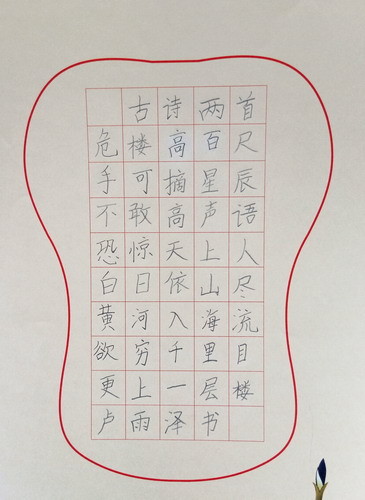 古诗两首
危楼高百尺
手可摘星辰
不敢高声语
恐惊天上人
白日依山尽
黄河入海流
欲穷千里目
更上一层楼
卢雨泽书